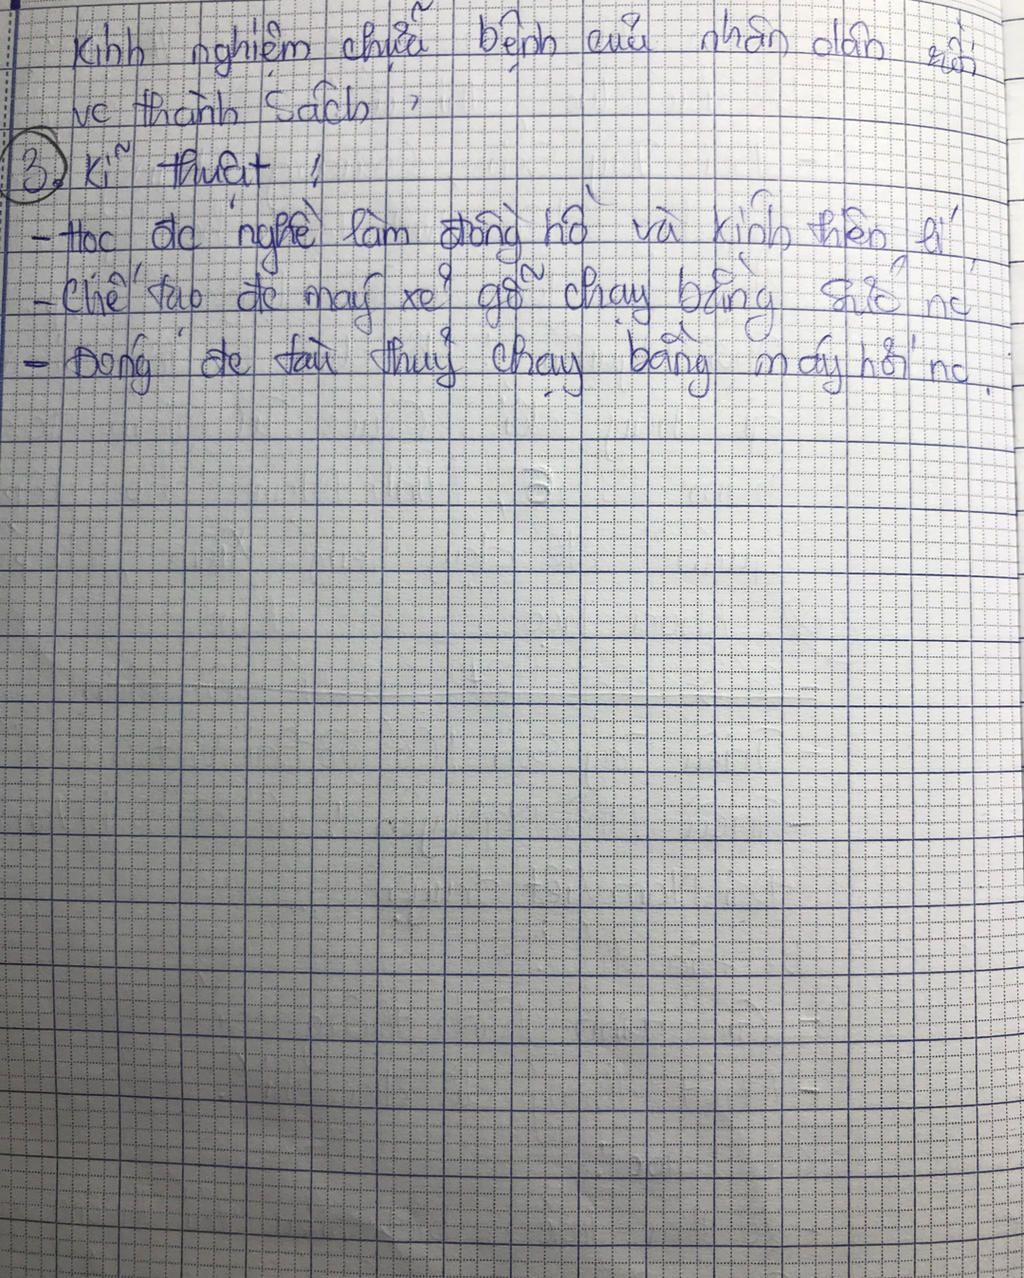 kinh nghiệm chữa bệnh của nhân dân
ve thành sách,
3. Kĩ thuật !
- Học đc nghề làm đồng hồ và kính thiên lí
- Chế tạo đc máy xẻ gỗ chạy bằng sức nc
- Đóng đc tàu thuỷ chạy bằng máy hơi nc.